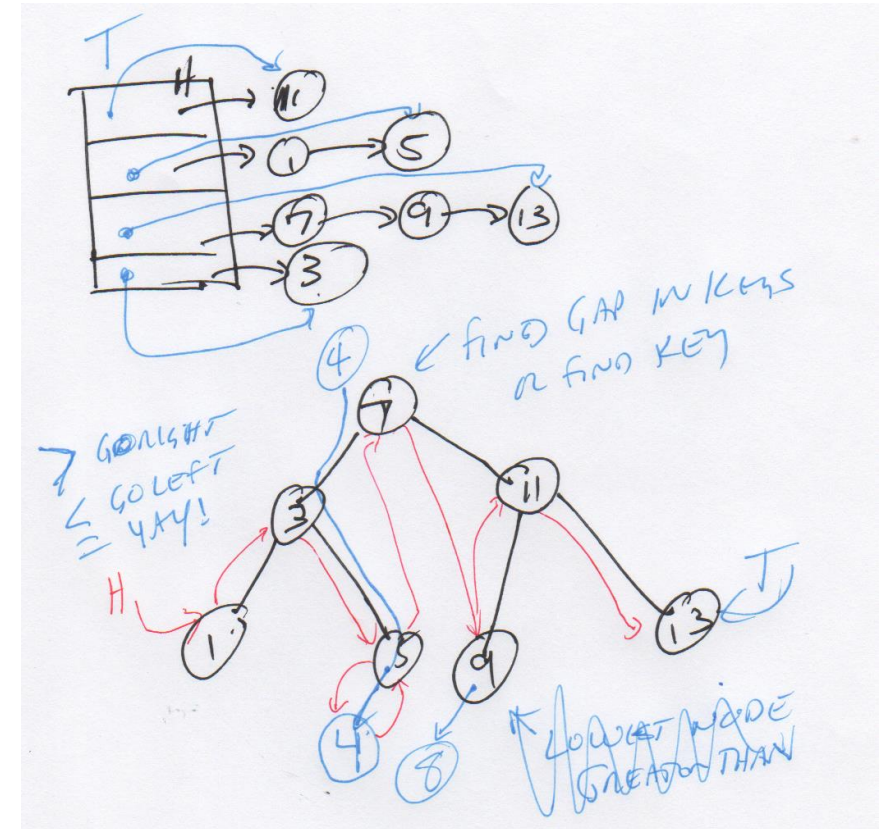 T
H
11
1
5
7
9
13
3
4
← FIND GAP IN KEYS
OR FIND KEY
7
> GO RIGHT
< GO LEFT
= YAY!
3
11
H
T
1
5
9
13
4
8
LOWEST NODE
GREATER THAN